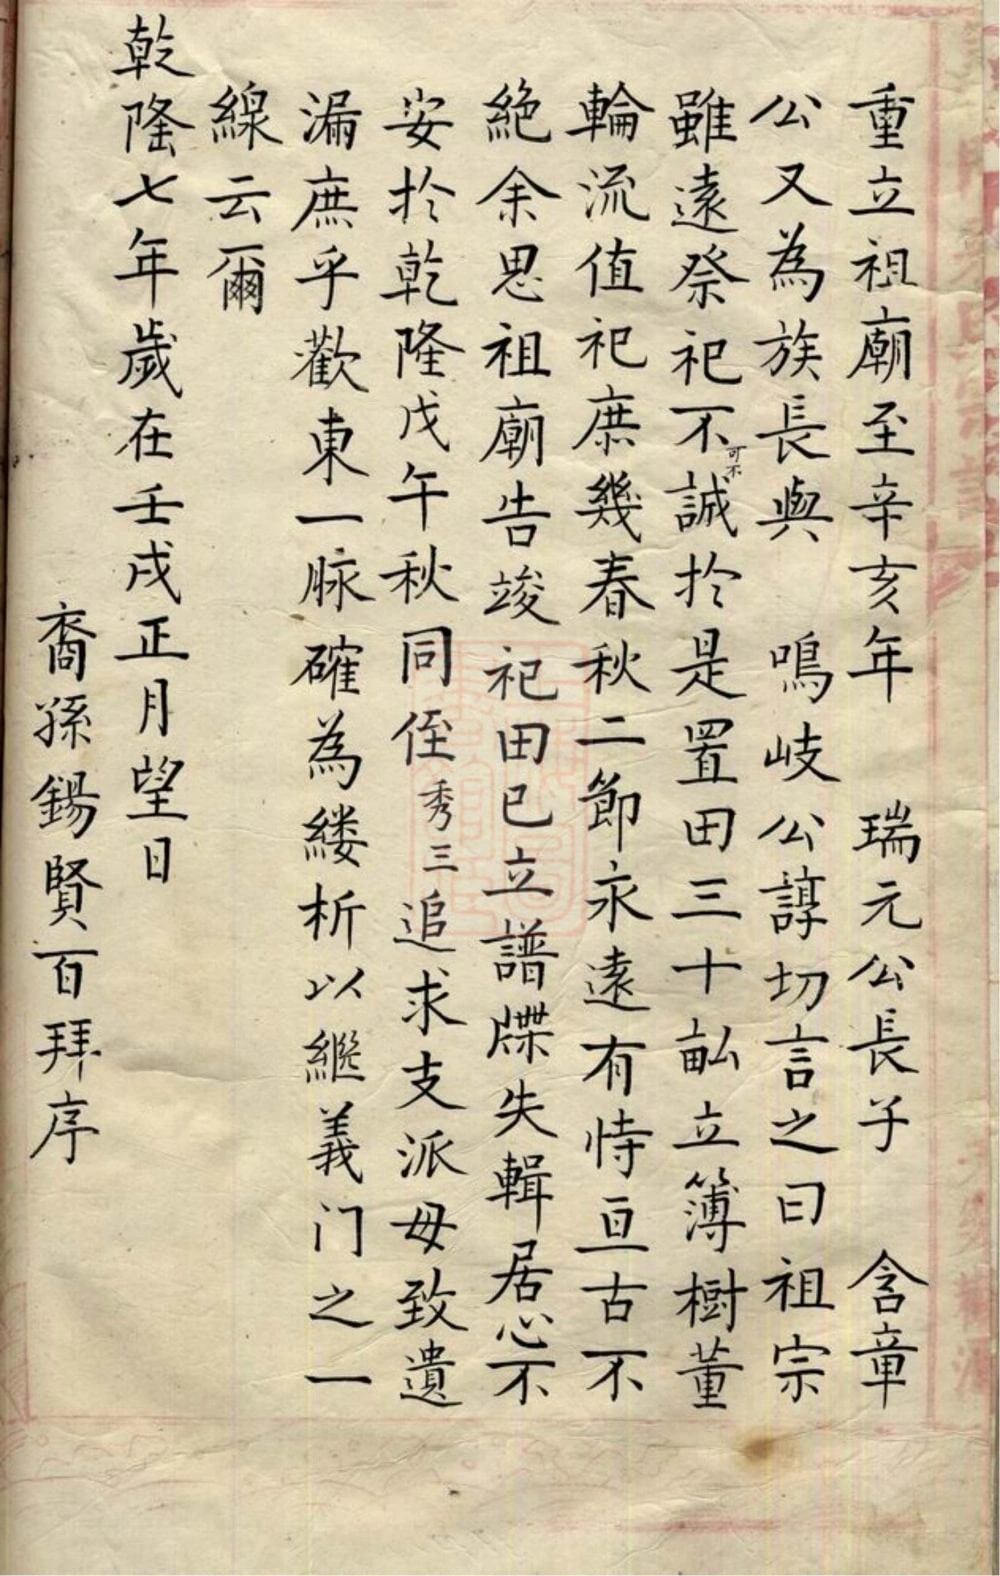 重立祖廟至辛亥年　瑞元公長子　含章
公又為族長與　鳴岐公諄切言之曰祖宗
雖遠祭祀不可不誠於是置田三十畝立簿樹董
輪流值祀庶幾春秋二節永遠有恃亘古不
絶余思祖廟告竣祀田已立譜牒失輯居心不
安於乾隆戊午秋同侄秀三追求支派毋致遺
漏庶乎歡東一脉確為縷析以繼義门之一
線云爾
乾隆七年歲在壬戌正月望日
裔孫錫賢百拜序